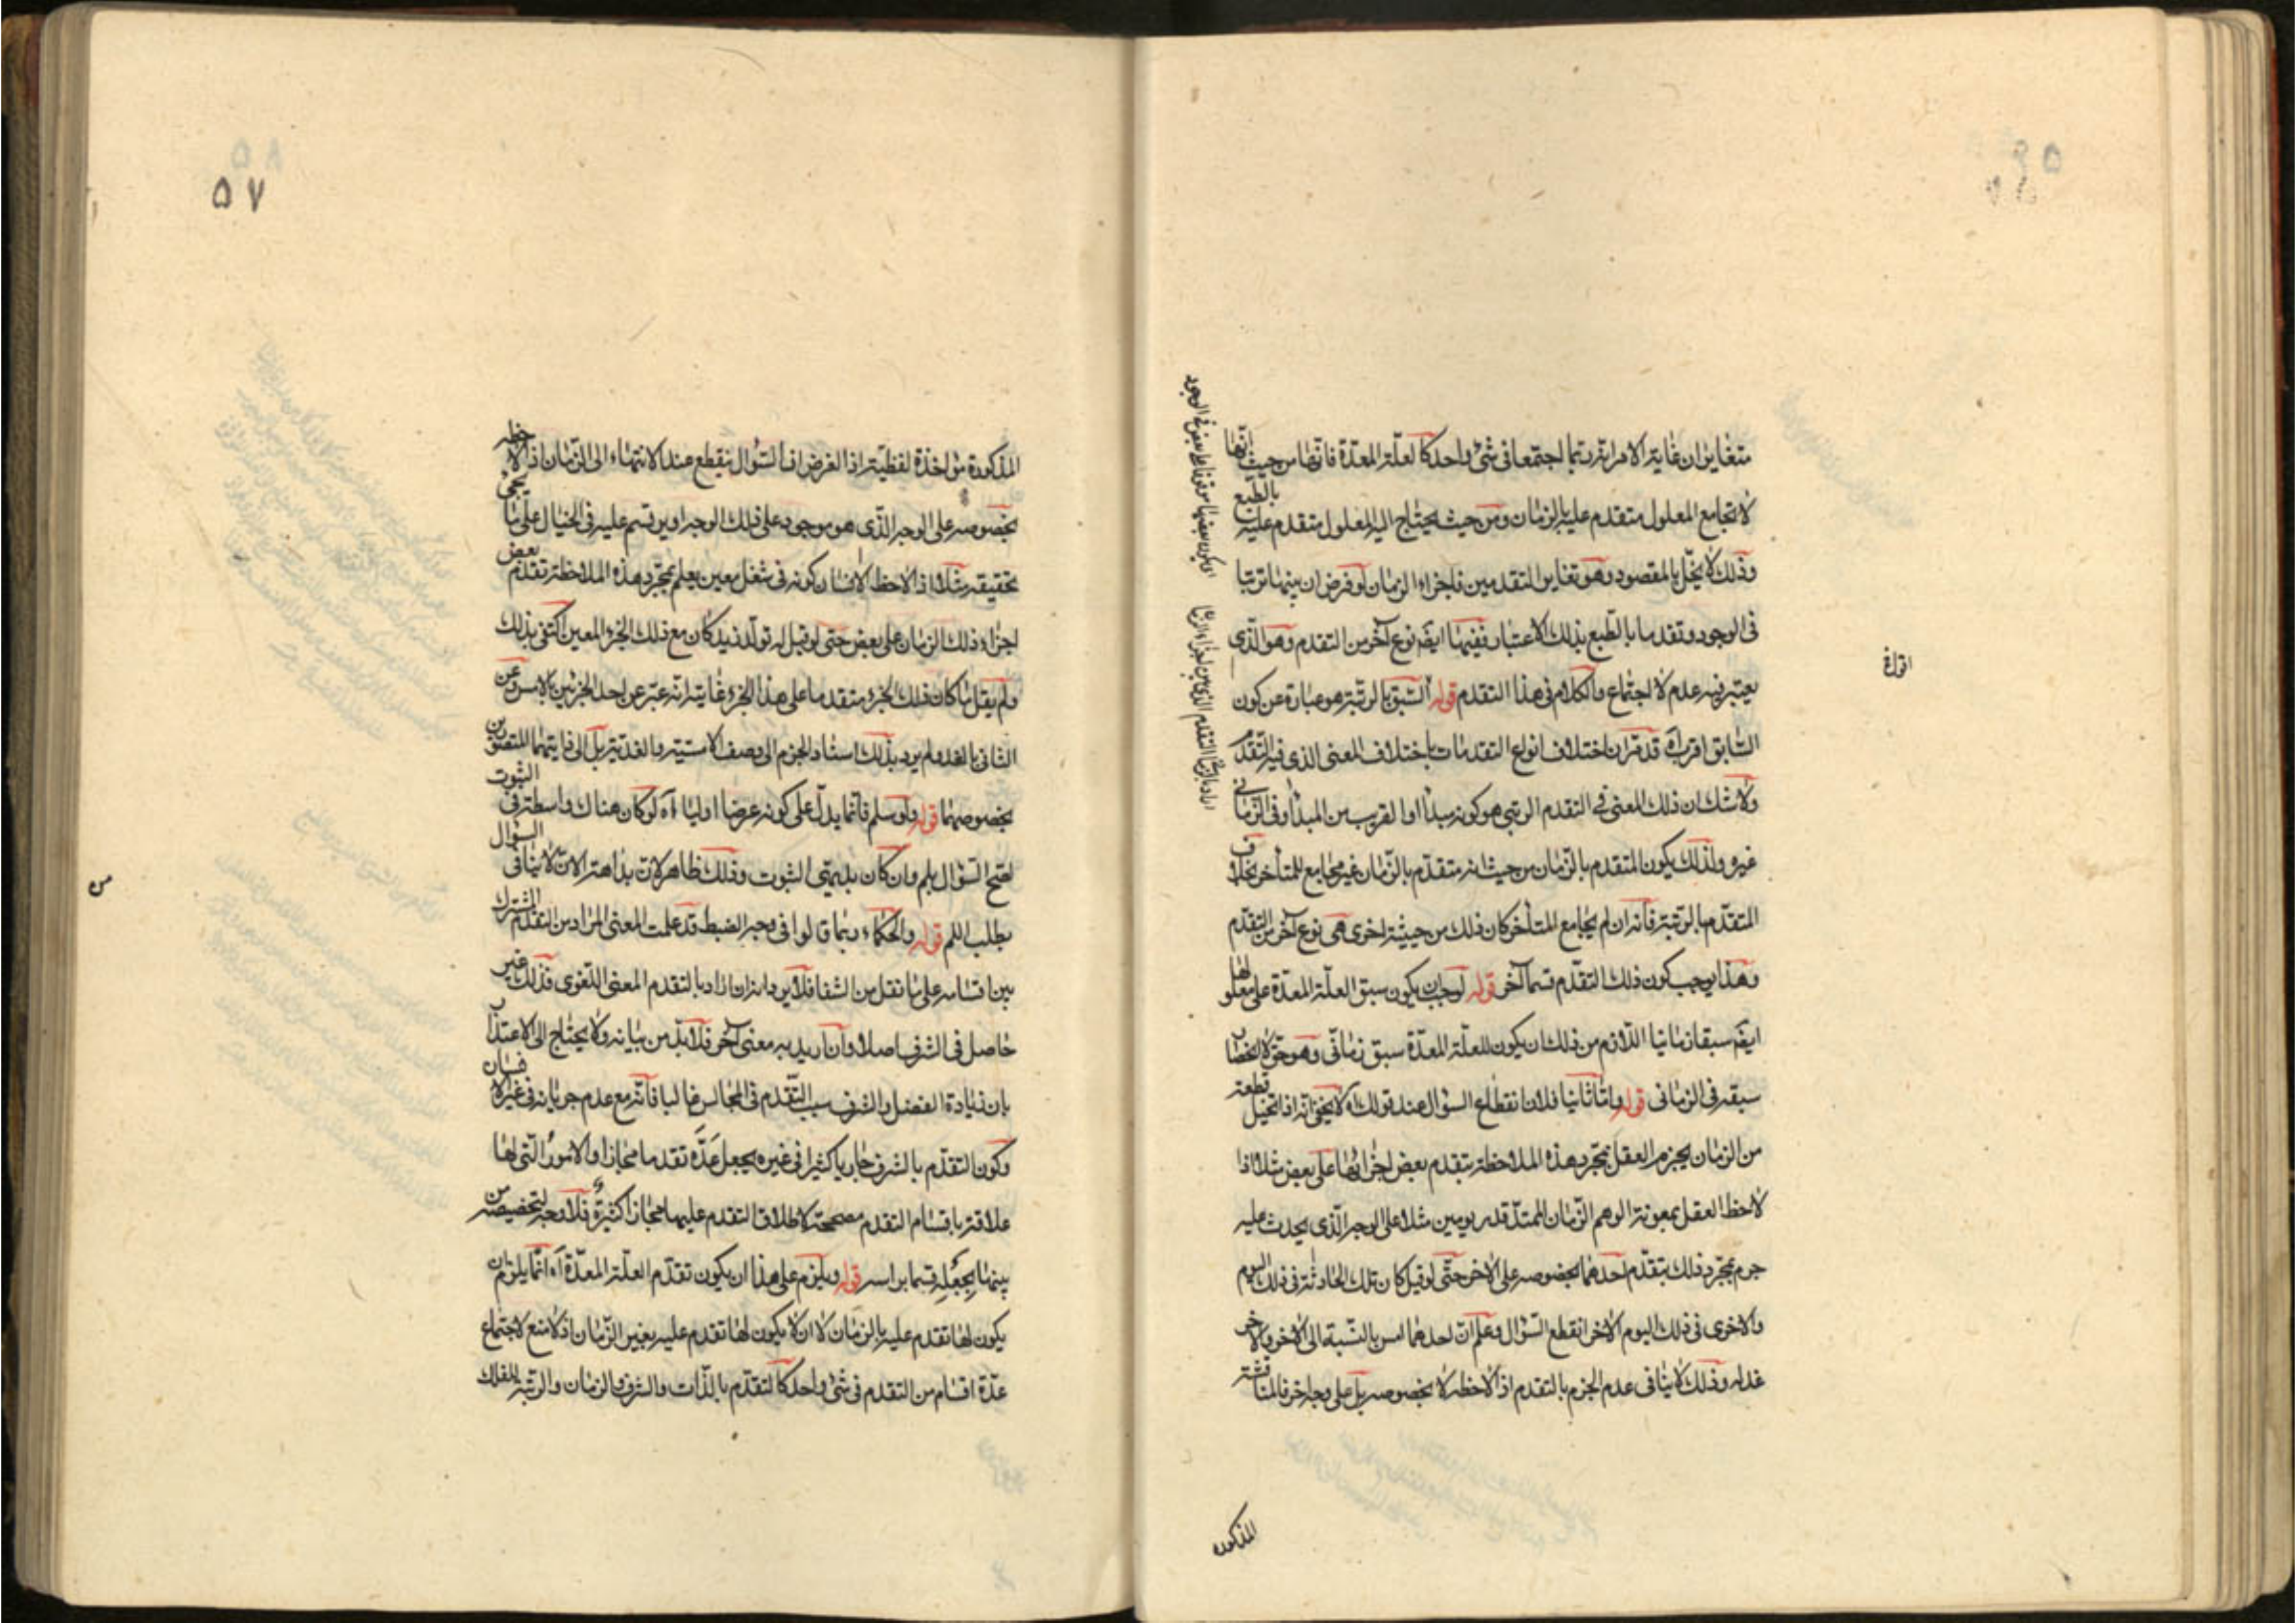 متغايران غاية الامر انه ربما اجتمعا فى شئ واحد كالعلة المعدة فانها من حيث انها
لا تجامع المعلول متقدم عليه بالزمان ومن حيث يحتاج اليه المعلول متقدم عليه بالطبع
وذلك لا يخل بالمقصود وهو تغاير التقدمين فاجزاء الزمان لو فرض ان بينهما ترتبا
فى الوجود وتقدما بالطبع بذلك الاعتبار ففيها ايضا نوع آخر من التقدم وهو الذى
يعتبر فيه عدم الاجتماع والكلام فى هذا التقدم قوله السبق بالرتبة هو عبارة عن كون
السابق اقرب آه قد مر ان اختلاف انواع التقدمات باختلاف المعنى الذى فيه التقدم
ولا شك ان ذلك المعنى فى التقدم الرتبى هو كونه مبدأ او القريب من المبدأ وفى الزمانى
غيره ولذلك يكون المتقدم بالزمان من حيث انه متقدم بالزمان غير مجامع للمتأخر بخلاف
المتقدم بالرتبة فانه ان لم يجامع المتأخر كان ذلك من حيثية اخرى هى نوع آخر من التقدم
وهذا يوجب كون ذلك التقدم قسما آخر قوله لوجب ان يكون سبق العلة المعدة على معلولها
ايضا سبقا زمانيا اللازم من ذلك ان يكون للعلة المعدة سبق زمانى وهو حق لا انحصار
سبقه فى الزمانى قوله واما ثانيا فلان انقطاع السؤال عند قولك آه لا يخفى انه اذا تخيل قطعة
من الزمان يجزم العقل بمجرد هذه الملاحظة بتقدم بعض اجزائها على بعض مثلا اذا
لاحظ العقل بمعونة الوهم الزمان الممتد قدر يومين مثلا على الوجه الذى يحدث عليه
جزم بمجرد ذلك بتقدم احدهما بخصوصه على الاخر حتى لو قيل كان تلك الحادثة فى ذلك اليوم
والاخرى فى ذلك اليوم الاخر انقطع السؤال وعلم ان احدهما امس بالنسبة الى الاخر والاخر
غد له وذلك لا ينافى عدم الجزم بالتقدم اذا لاحظه لا بخصوصه بل على وجه اخر فالمناقشة
المذكورة
۵۷
المذكورة مؤاخذة لفظية اذ الغرض ان السؤال ينقطع عند الانتهاء الى الزمان اذا لاحظه
بخصوصه على الوجه الذى هو موجود على ذلك الوجه او يرتسم عليه فى الخيال على ما يجئ
تحقيقه مثلا اذا لاحظ الانسان كونه فى شغل معين يعلم بمجرد هذه الملاحظة تقدم بعض
اجزاء ذلك الزمان على بعض حتى لو قيل له تولد زيد كان مع ذلك الجزء المعين اكتفى بذلك
ولم يقل لما كان ذلك الجزء متقدما على هذا الجزء غايته انه عبر عن احد الجزئين بالامس وعن
الثانى بالغد ولم يرد بذلك استناد الجزم الى وصف الامسية والغدية بل الى ذاتيهما المتصورين
بخصوصهما قوله ولو سلم فانما يدل على كونه عرضا اوليا آه لو كان هناك واسطة فى الثبوت
لصح السؤال بلم وان كان بديهى الثبوت وذلك ظاهر لان بداهة الان لا ينافى السؤال
بطلب اللم قوله والحكماء ربما قالوا فى وجه الضبط قد علمت المعنى المراد من التقدم المشترك
بين اقسامه على ما نقل من الشفا فلا يرد انه ان اراد بالتقدم المعنى اللغوى فذلك غير
حاصل فى الشرف اصلا وان اريد به معنى آخر فلا بد من بيانه ولا يحتاج الى الاعتذار
بان زيادة الفضل والشرف سبب التقدم فى المجالس غالبا فانه مع عدم جريانه فى غير الانسان
وكون التقدم بالشرف جاريا كثيرا فى غيره يجعل عده تقدما مجازا والامور التى لها
علاقة باقسام التقدم مصححة لاطلاق التقدم عليها مجازا كثيرة فلا وجه لتخصيصه من
بينها بجعله قسما براسه قوله ويلزم على هذا ان يكون تقدم العلة المعدة آه انما يلزم ان
يكون لها تقدم عليه بالزمان لا ان لا يكون لها تقدم عليه بغير الزمان اذ لا منع لاجتماع
عدة اقسام من التقدم فى شئ واحد كالتقدم بالذات والشرف والزمان والرتبة للفلك